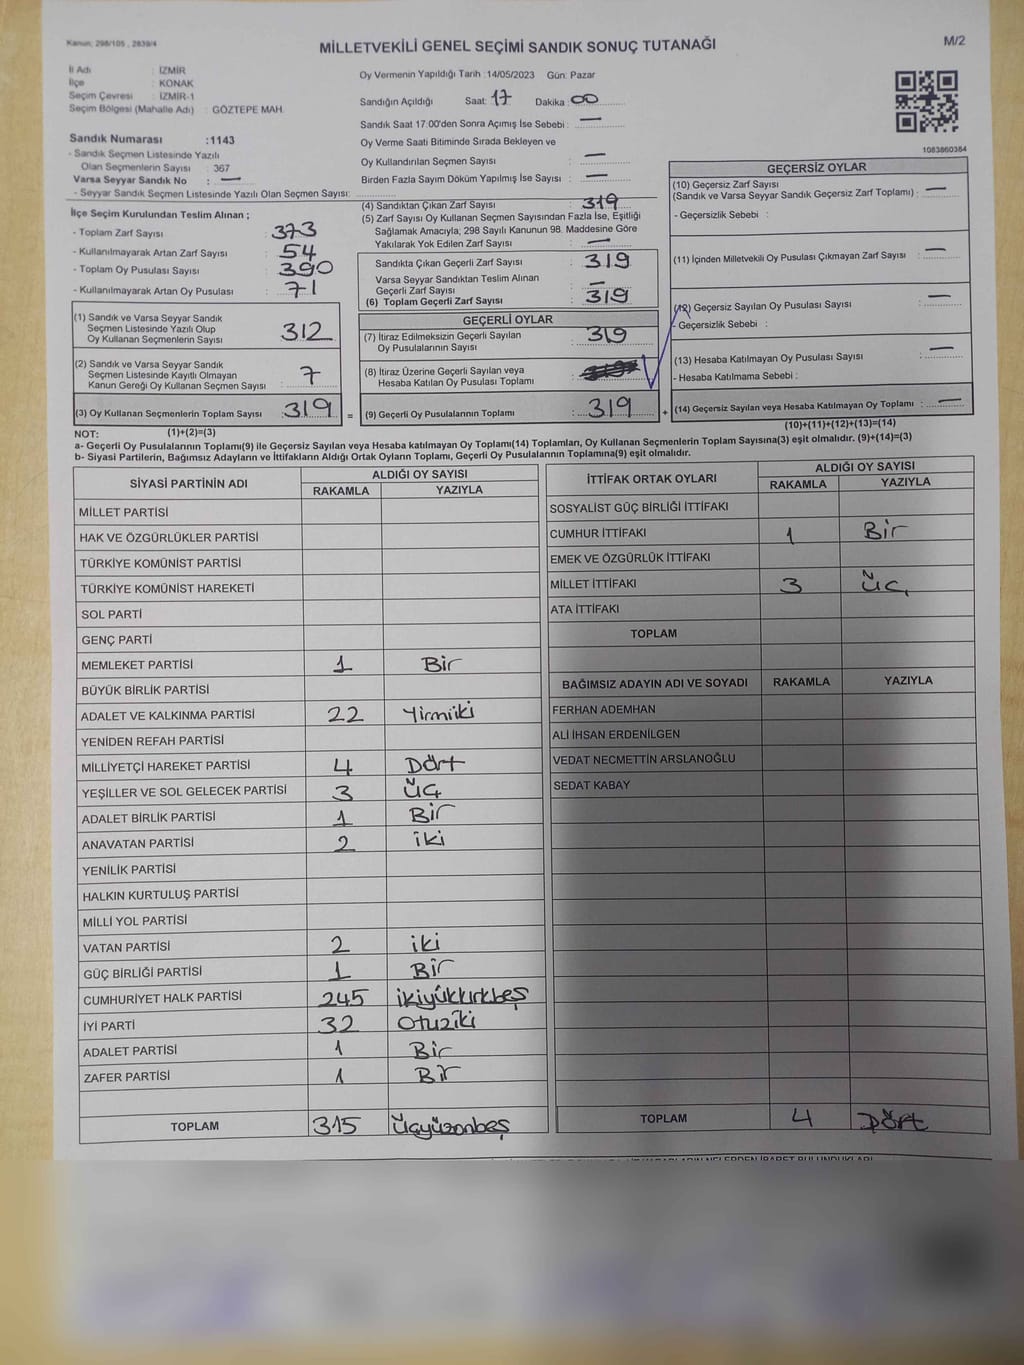 Kanun: 298/105 , 2839/4
MİLLETVEKİLİ GENEL SEÇİMİ SANDIK SONUÇ TUTANAĞI
M/2
İl Adı : İZMİR
İlçe : KONAK
Seçim Çevresi : İZMİR-1
Seçim Bölgesi (Mahalle Adı) : GÖZTEPE MAH.
Sandık Numarası :1143
- Sandık Seçmen Listesinde Yazılı
Olan Seçmenlerin Sayısı : 367
Varsa Seyyar Sandık No : —
- Seyyar Sandık Seçmen Listesinde Yazılı Olan Seçmen Sayısı:
Oy Vermenin Yapıldığı Tarih :14/05/2023 Gün: Pazar
Sandığın Açıldığı Saat: 17 Dakika 00
Sandık Saat 17:00'den Sonra Açımış İse Sebebi : —
Oy Verme Saati Bitiminde Sırada Bekleyen ve
Oy Kullandırılan Seçmen Sayısı : —
Birden Fazla Sayım Döküm Yapılmış İse Sayısı : —
1083860384
İlçe Seçim Kurulundan Teslim Alınan ;
- Toplam Zarf Sayısı : 373
- Kullanılmayarak Artan Zarf Sayısı : 54
- Toplam Oy Pusulası Sayısı : 390
- Kullanılmayarak Artan Oy Pusulası : 71
(1) Sandık ve Varsa Seyyar Sandık
Seçmen Listesinde Yazılı Olup
Oy Kullanan Seçmenlerin Sayısı : 312
(2) Sandık ve Varsa Seyyar Sandık
Seçmen Listesinde Kayıtlı Olmayan
Kanun Gereği Oy Kullanan Seçmen Sayısı : 7
(3) Oy Kullanan Seçmenlerin Toplam Sayısı : 319 =
(4) Sandıktan Çıkan Zarf Sayısı : 319
(5) Zarf Sayısı Oy Kullanan Seçmen Sayısından Fazla İse, Eşitliği
Sağlamak Amacıyla, 298 Sayılı Kanunun 98. Maddesine Göre
Yakılarak Yok Edilen Zarf Sayısı : —
Sandıkta Çıkan Geçerli Zarf Sayısı : 319
Varsa Seyyar Sandıktan Teslim Alınan
Geçerli Zarf Sayısı : —
(6) Toplam Geçerli Zarf Sayısı : 319
GEÇERLİ OYLAR
(7) İtiraz Edilmeksizin Geçerli Sayılan
Oy Pusulalarının Sayısı : 319
(8) İtiraz Üzerine Geçerli Sayılan veya
Hesaba Katılan Oy Pusulası Toplamı :
(9) Geçerli Oy Pusulalarının Toplamı : 319 +
GEÇERSİZ OYLAR
(10) Geçersiz Zarf Sayısı
(Sandık ve Varsa Seyyar Sandık Geçersiz Zarf Toplamı) : —
- Geçersizlik Sebebi :
(11) İçinden Milletvekili Oy Pusulası Çıkmayan Zarf Sayısı : —
(12) Geçersiz Sayılan Oy Pusulası Sayısı : —
- Geçersizlik Sebebi :
(13) Hesaba Katılmayan Oy Pusulası Sayısı : —
- Hesaba Katılmama Sebebi :
(14) Geçersiz Sayılan veya Hesaba Katılmayan Oy Toplamı : —
NOT: (1)+(2)=(3)
(10)+(11)+(12)+(13)=(14)
a- Geçerli Oy Pusulalarının Toplamı(9) ile Geçersiz Sayılan veya Hesaba katılmayan Oy Toplamı(14) Toplamları, Oy Kullanan Seçmenlerin Toplam Sayısına(3) eşit olmalıdır. (9)+(14)=(3)
b- Siyasi Partilerin, Bağımsız Adayların ve İttifakların Aldığı Ortak Oyların Toplamı, Geçerli Oy Pusulalarının Toplamına(9) eşit olmalıdır.
SİYASİ PARTİNİN ADI ALDIĞI OY SAYISI
RAKAMLA YAZIYLA
MİLLET PARTİSİ
HAK VE ÖZGÜRLÜKLER PARTİSİ
TÜRKİYE KOMÜNİST PARTİSİ
TÜRKİYE KOMÜNİST HAREKETİ
SOL PARTİ
GENÇ PARTİ
MEMLEKET PARTİSİ 1 Bir
BÜYÜK BİRLİK PARTİSİ
ADALET VE KALKINMA PARTİSİ 22 Yirmiiki
YENİDEN REFAH PARTİSİ
MİLLİYETÇİ HAREKET PARTİSİ 4 Dört
YEŞİLLER VE SOL GELECEK PARTİSİ 3 üç
ADALET BİRLİK PARTİSİ 1 Bir
ANAVATAN PARTİSİ 2 iki
YENİLİK PARTİSİ
HALKIN KURTULUŞ PARTİSİ
MİLLİ YOL PARTİSİ
VATAN PARTİSİ 2 iki
GÜÇ BİRLİĞİ PARTİSİ 1 Bir
CUMHURİYET HALK PARTİSİ 245 ikiyükkırkbeş
İYİ PARTİ 32 Otuziki
ADALET PARTİSİ 1 Bir
ZAFER PARTİSİ 1 Bir
TOPLAM 315 üçyüzonbeş
İTTİFAK ORTAK OYLARI ALDIĞI OY SAYISI
RAKAMLA YAZIYLA
SOSYALİST GÜÇ BİRLİĞİ İTTİFAKI
CUMHUR İTTİFAKI 1 Bir
EMEK VE ÖZGÜRLÜK İTTİFAKI
MİLLET İTTİFAKI 3 üç
ATA İTTİFAKI
TOPLAM
BAĞIMSIZ ADAYIN ADI VE SOYADI RAKAMLA YAZIYLA
FERHAN ADEMHAN
ALİ İHSAN ERDENİLGEN
VEDAT NECMETTİN ARSLANOĞLU
SEDAT KABAY
TOPLAM 4 Dört